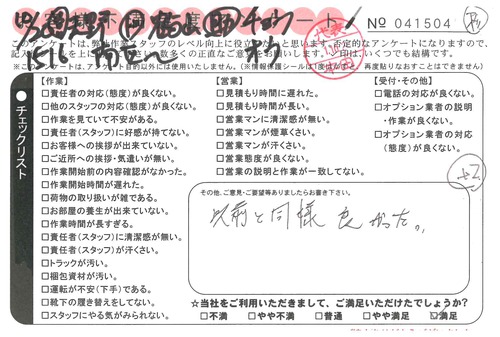 No 041504
このアンケートは、弊社作業スタッフのレベル向上に役立
思います。否定的なアンケートになりますので、
正直なご意見をお
印は、いくつでも結構です。
【作業】
□責任者の対応(態度)が良くない。
□他のスタッフの対応(態度)が良くない。
□作業を見ていて不安がある。
□責任者(スタッフ)に好感が持てない。
□お客様への挨拶が出来ていない。
□ご近所への挨拶・気遣いが無い。
□作業開始前の内容確認がなかった。
□作業開始時間が遅れた。
□荷物の取り扱いが雑である。
□お部屋の養生が出来ていない。
□作業時間が長すぎる。
□責任者(スタッフ)に清潔感が無い。
□責任者(スタッフ)が汗くさい。
□トラックが汚い。
□梱包資材が汚い。
□運転が不安(下手)である。
□靴下の履き替えをしてない。
□スタッフにやる気がみられない。
【営業】
□見積もり時間に遅れた。
□見積もり時間が長い。
□営業マンに清潔感が無い。
□営業マンが煙草くさい。
□営業マンが汗くさい。
□営業態度が良くない。
□営業の説明と作業が一致してない。
【受付・その他】
□電話の対応が良くない。
□オプション業者の説明
・作業が良くない。
□オプション業者の対応
(態度)が良くない。
チェックリスト
その他、ご意見・ご要望等ありましたらお書き下さい。
以前と同様良かった。
☆当社をご利用いただきまして、ご満足いただけたでしょうか?
□不満 □やや不満 □普通 □やや満足 ☑満足